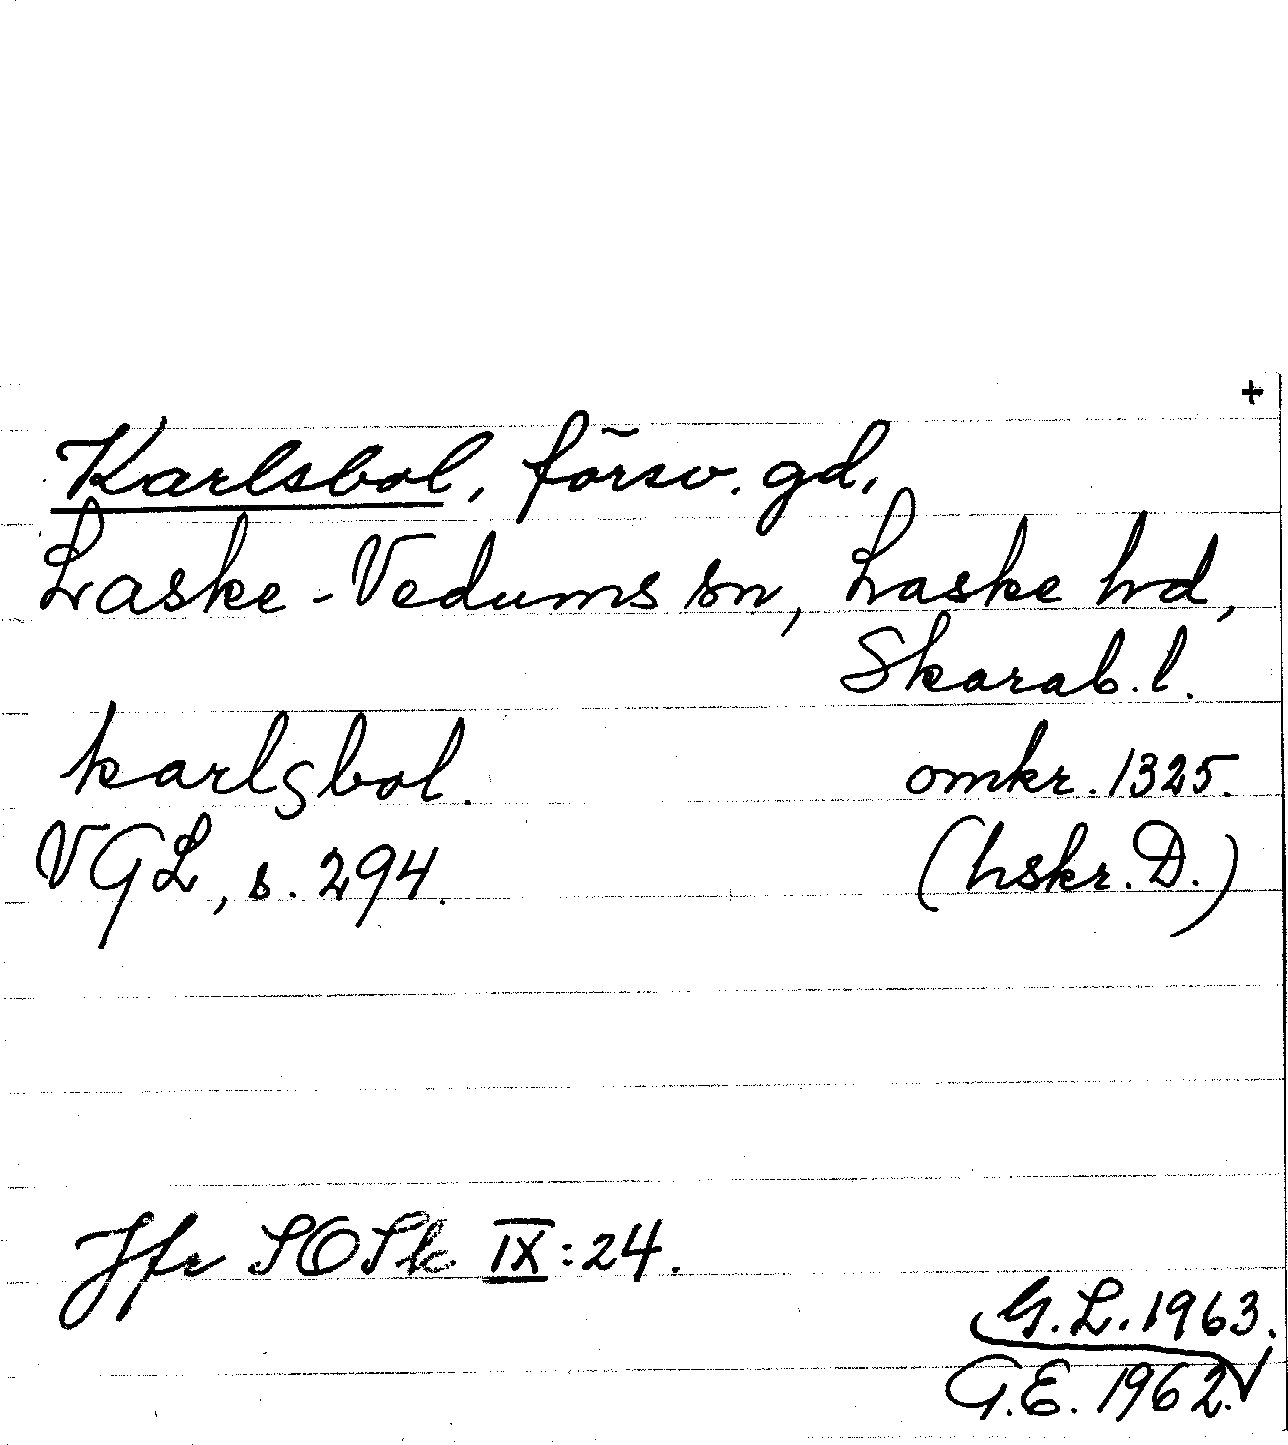 +
Karlsbol, försv. gd,
Laske-Vedums sn, Laske hd,
Skarab. l.
karlsbol. omkr. 1325.
VGL, s. 294. (hskr. D.)
Jfr SOSk IX:24.
G.L. 1963.
G.E. 1962.